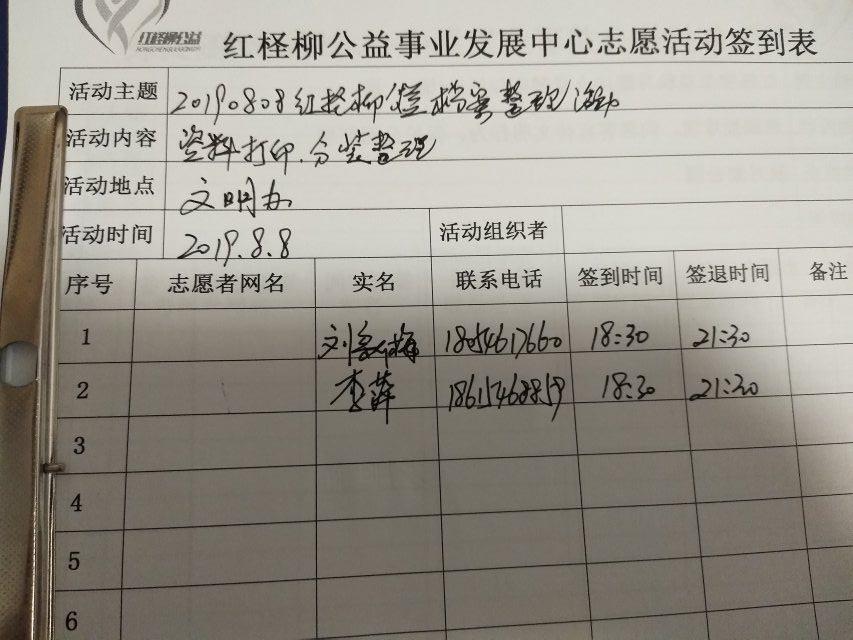 红柽柳公益
红柽柳公益事业发展中心志愿活动签到表
活动主题 20190808红柽柳 档案整理活动
活动内容 资料打印、分装整理
活动地点 文明办
活动时间 2019.8.8 活动组织者
序号 志愿者网名 实名 联系电话 签到时间 签退时间 备注
1 刘 梅 18054617660 18:30 21:30
2 李萍 18615468859 18:30 21:30
3
4
5
6